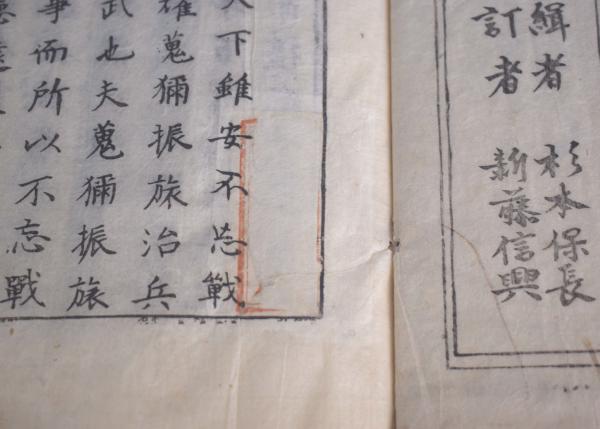 緝者 杉本保長
訂者 新藤信興
下雖安不忘戰
蒐獮振旅治兵
武也夫蒐獮振旅
事而所以不忘戰